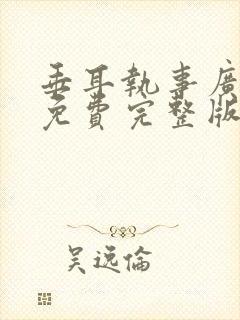 垂耳執事廣
免費完整版
吴远倫